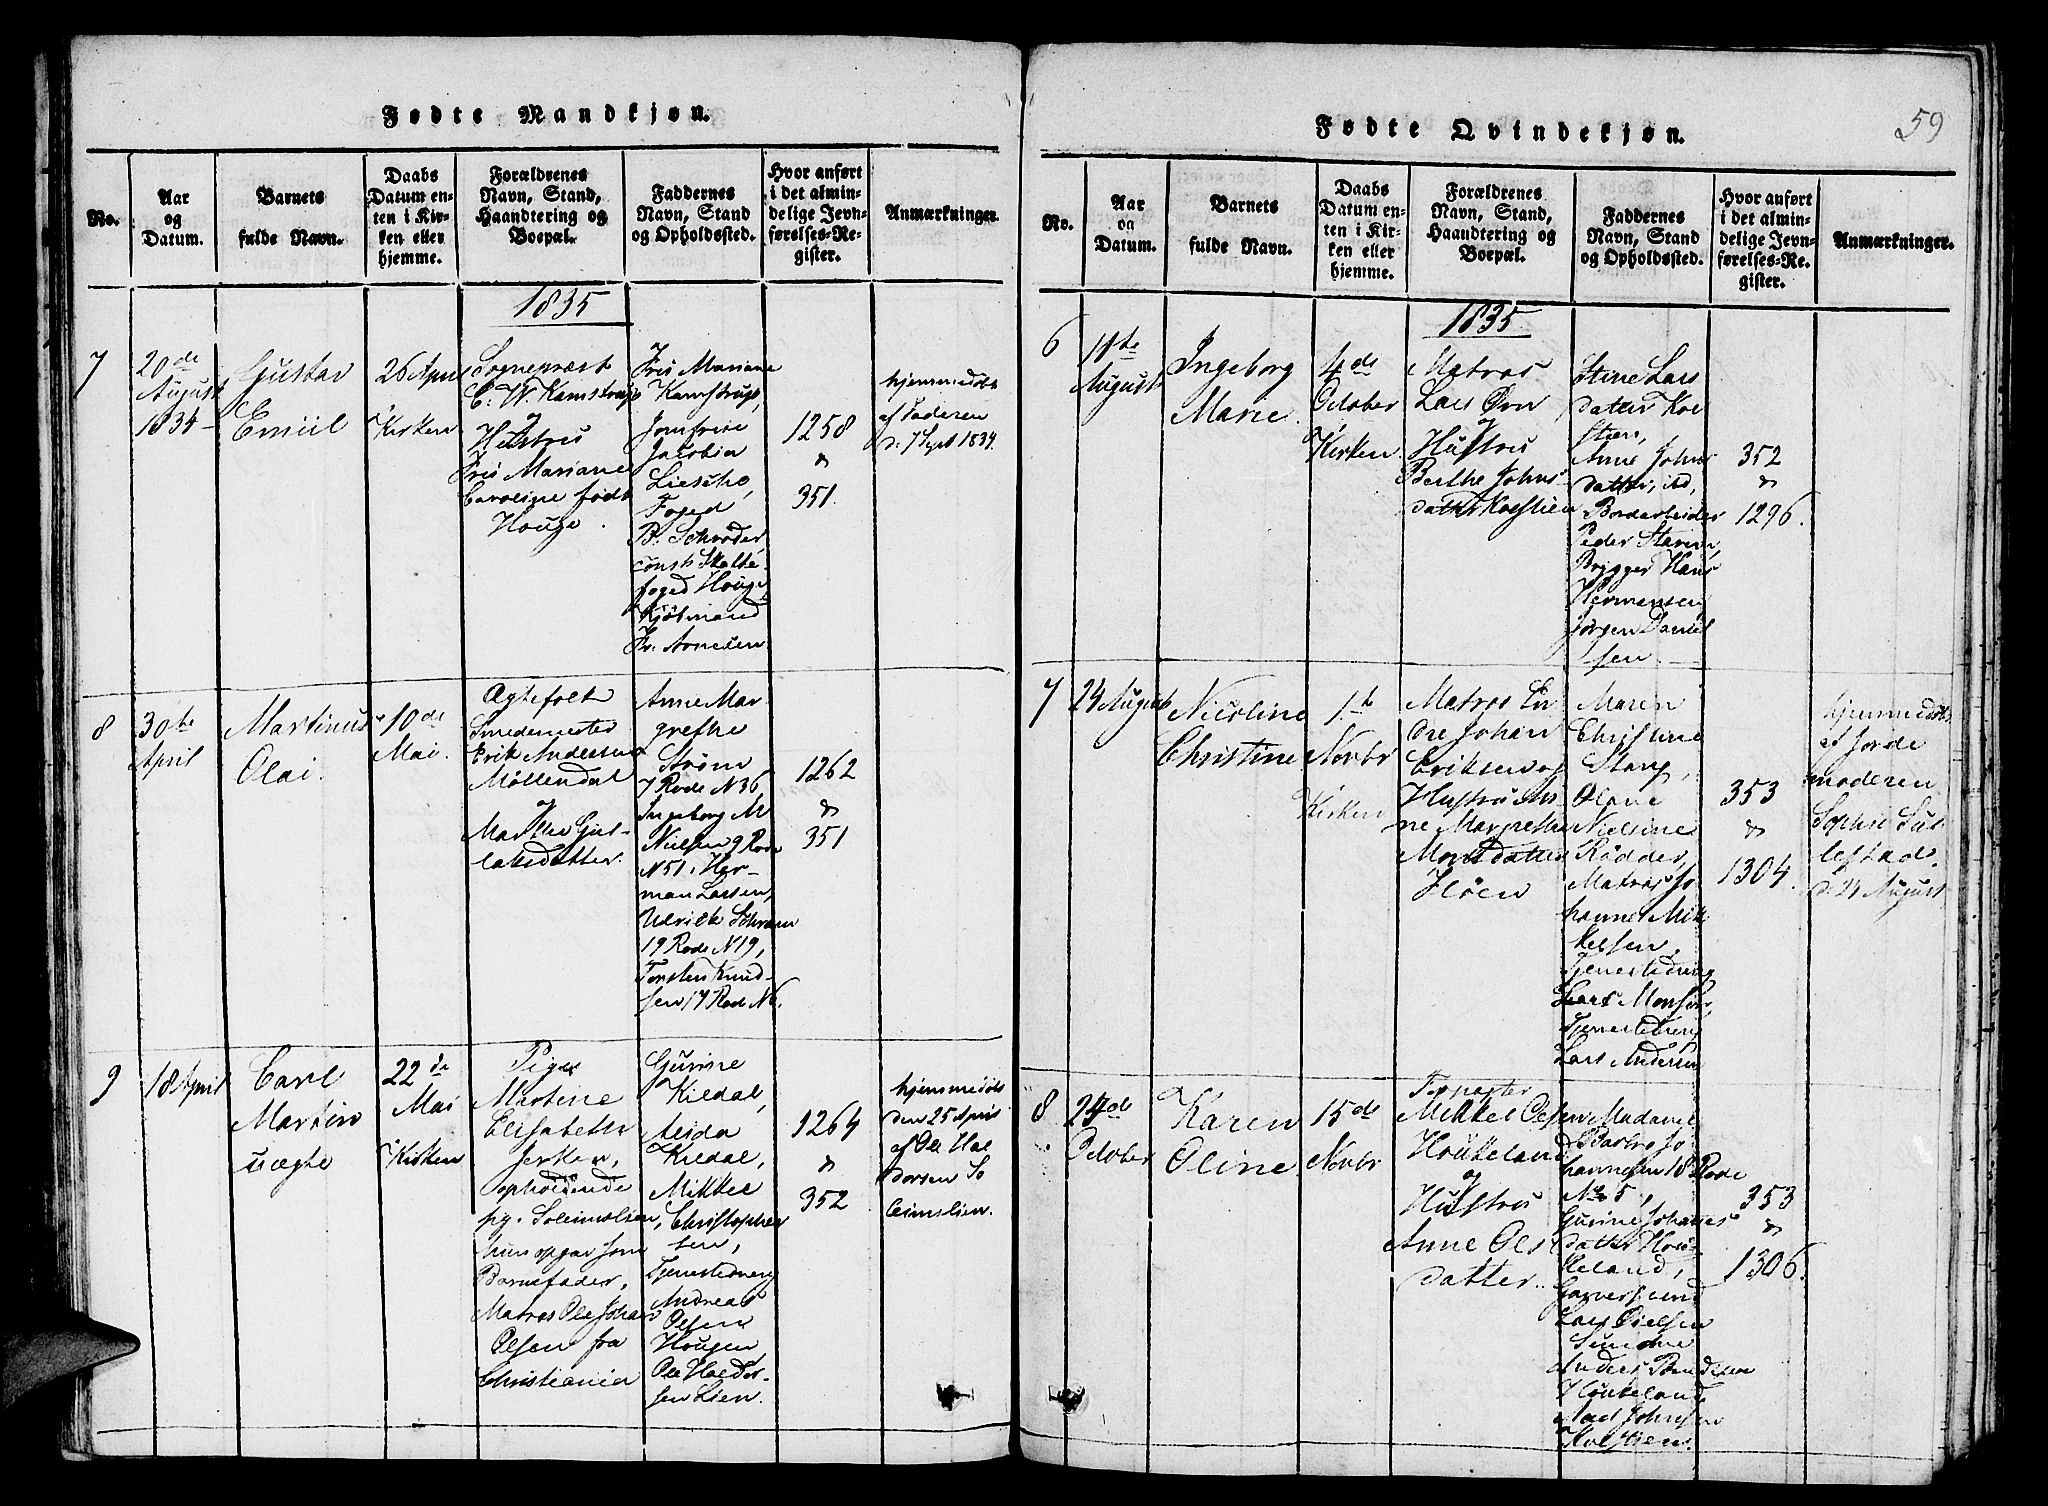 Fødte Mandkjøn.
No.
Aar
og
Datum.
Barnets
fulde Navn.
Daabs
Datum en-
ten i Kir-
ken eller
hjemme.
Forældrenes
Navn, Stand,
Haandtering og
Boepæl.
Faddernes
Navn, Stand
og Opholdssted.
Hvor anført
i det almin-
delige Jevn-
førelses-Re-
gister.
Anmærkninger.
1835
7
20de
August
1834
Gustav
Emiil
26 April
i Kirken
Sognepræst
C. W. Kamstrup
og
Hustru
Fru Mariane
Caroline født
Houge.
Fru Mariane
Kamstrup,
Jomfrue
Jacobia
Foged
B. Schrøder
const. Skatte
foged Houge,
Kjøbmand
Fr. Arnesen
1258
&
351.
hjemmedøbt
af Faderen
d. 7 Sept 1834.
8
30te
April
Martinus
Olai.
10de
Mai.
Ægtefolk
Smedemester
Erik Andersen
Møllendal
og
Marthe Gut-
laksdatter.
Anne Mar
grethe
Strøm
7 Rode N 36,
Ingeborg M
Nielsen 9 Rode
N 51, Her-
man Larsen,
Udrikk
19 Rode N 19,
Torsten Knud-
sen 17 Rode N 6.
1262
&
351
9
18 April
Carl
Martin
uægte
22de
Mai
i Kirken
Pige
Martine
Elisabeth
opholdende
hun opgav som
Barnefader,
Matros Ole Johan
Olsen fra
Christiania
Gurine
Kildal,
Kildal,
Mikkel
Christopher
sen,
Tjenestedreng
Andreas
Olsen
Hougen,
Ole Haldor-
sen Lien.
1264
&
352
hjemmedøbt
den 25 April
af Ole Hal
dorsen
59
Fødte Qvindekjøn.
No.
Aar
og
Datum.
Barnets
fulde Navn.
Daabs
Datum en-
ten i Kir-
ken eller
hjemme.
Forældrenes
Navn, Stand,
Haandtering og
Boepæl.
Faddernes
Navn, Stand
og Opholdssted.
Hvor anført
i det almin-
delige Jevn-
førelses-Re-
gister.
Anmærkninger.
1835.
6
11te
August
Ingeborg
Marie.
4de
October
i Kirken.
Matros
Lars Ørn
og
Hustru
Berthe Johns-
datter
Stine Lars
datter Kol
stien,
Anne Johns
datter, ibd,
Bordarbeider
Peder
Brygger Hans
Hermensen
Jørgen Daniel
sen.
352
&
1296.
7
24 August
Nicoline
Christine
1te
Novbr
i Kirken
Matros En
dre Johan
Eriksen og
Hustru An
ne Margrethe
Monsdatter
Høen
Maren
Christine
Stang,
Olave
Nielsine
Rødder,
Matros Jo
hannes Mik
kelsen,
Tjenestedreng
Lars Monsen,
Tjenestedreng
Lars Andersen
353
&
1304.
hjemmedøbt
af Jorde
moderen
Sophie Sul
lestad.
d. 24 August
8
24de
October
Karen
Oline
15de
Novbr
Mikkel Olsen
Houkeland
og
Hustru
Anne Ols
datter.
Madame
Barbro Jo
hannesen 18 Rode
No 5,
Gurine Johanes
datter Hou-
keland,
Garversvend
Lars
Anders
Houkeland
Mads Johnsen
353
&
1306.